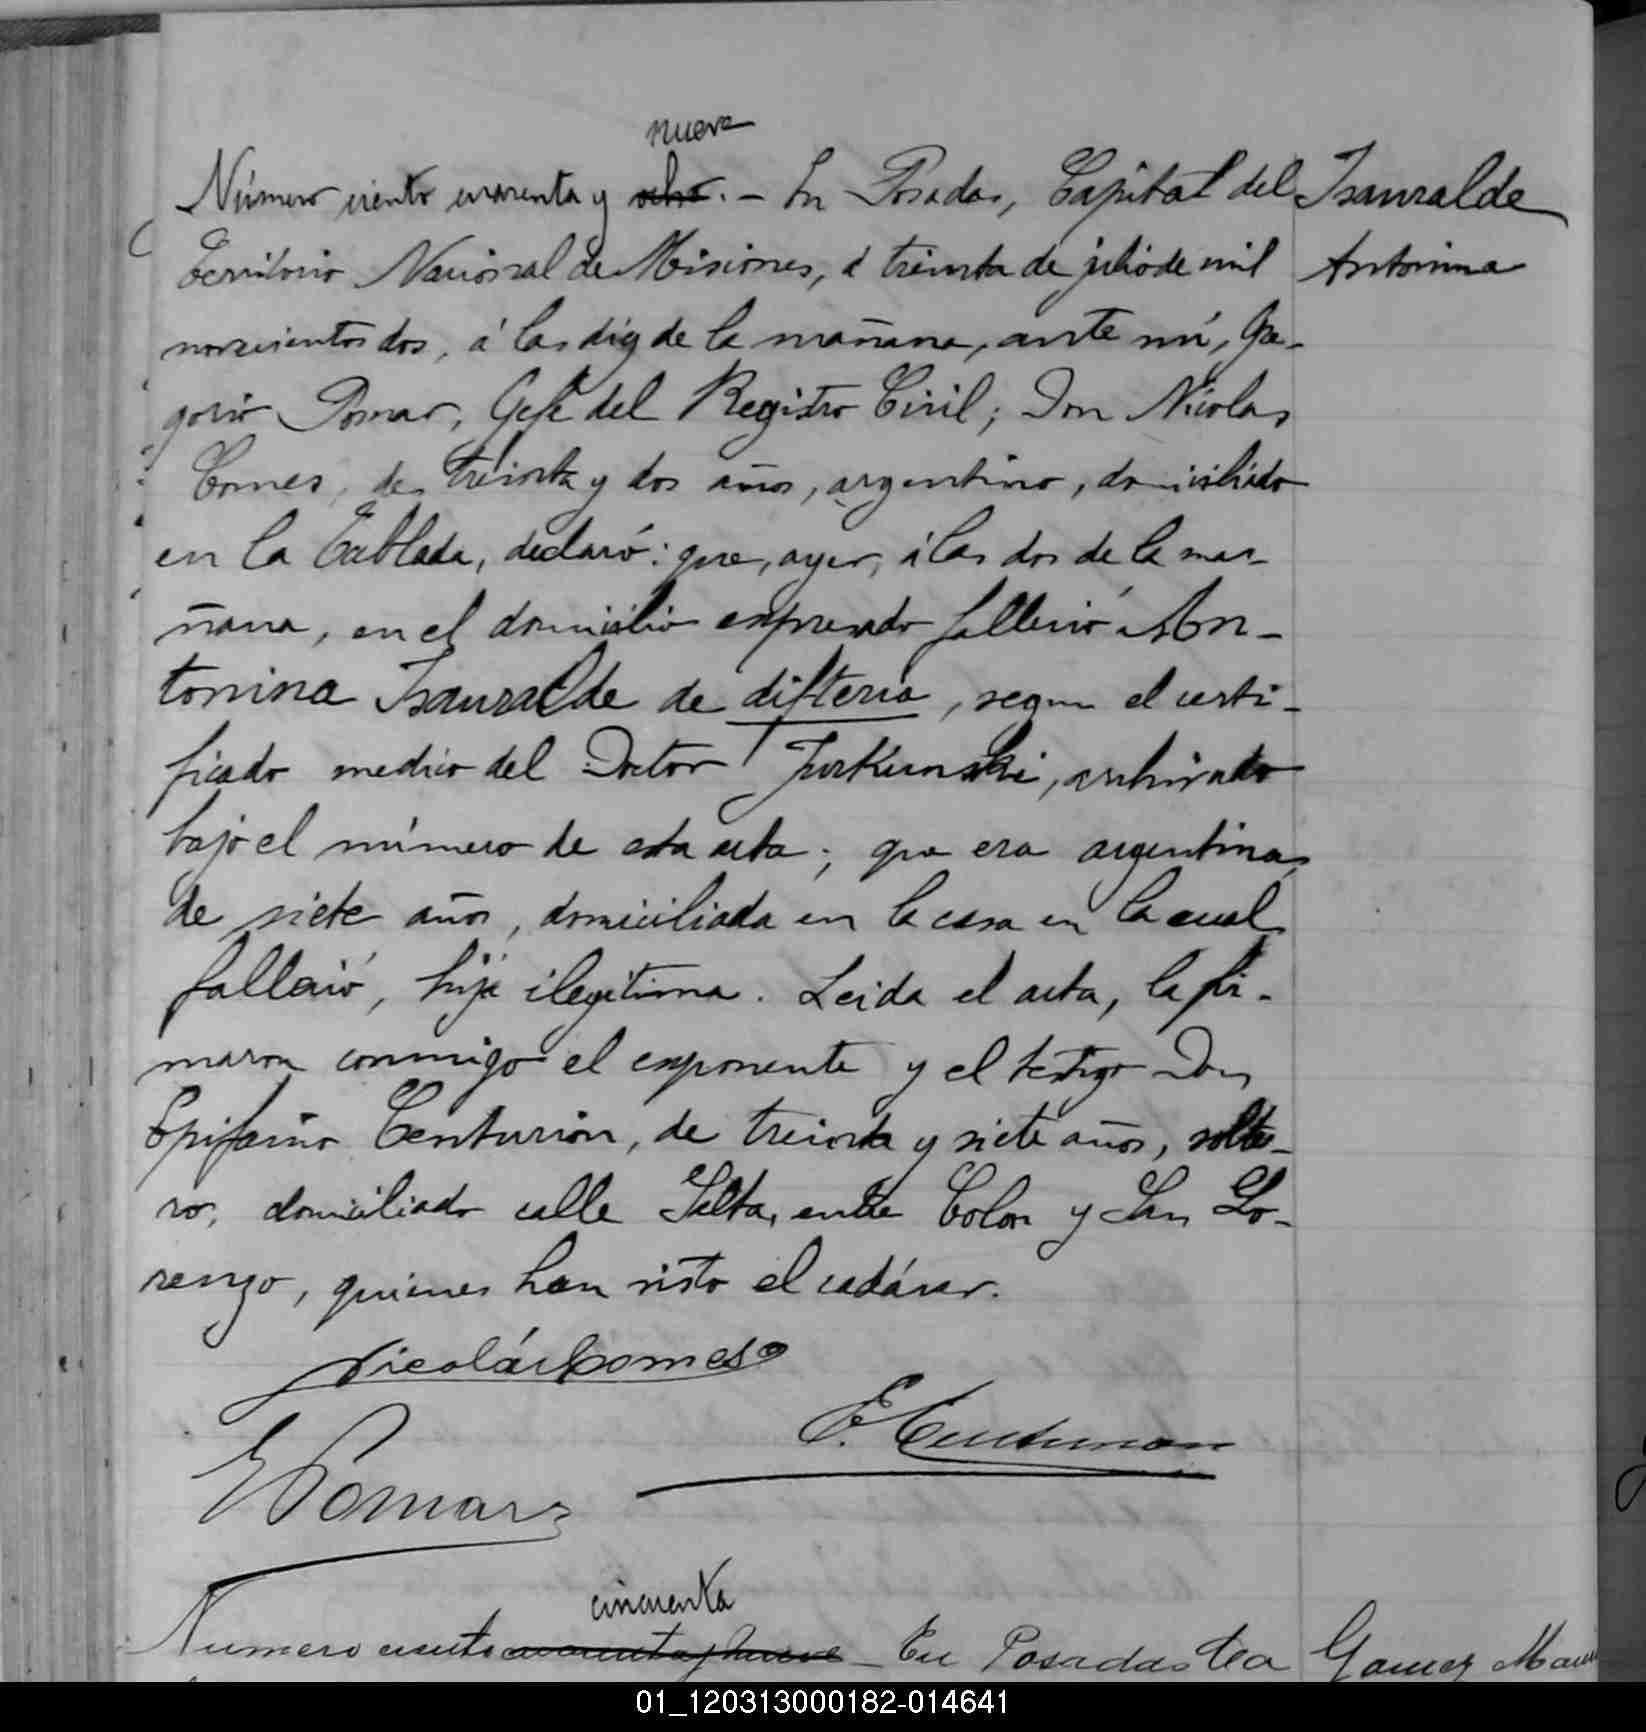 nueve
Número ciento cuarenta y ocho. — En Posadas, Capital del
Territorio Nacional de Misiones, á treinta de julio de mil
novecientos dos, á las diez de la mañana, ante mí, Gre-
gorio Pomar, Gefe del Registro Civil; Don Nicolas
Comes, de treinta y dos años, argentino, domiciliado
en la Tablada, declaró: que, ayer, á las dos de la ma-
ñana, en el domicilio expresado falleció An-
tonina Isauralde de difteria, segun el certi-
ficado medico del Doctor archivado
bajo el número de esta acta; que era argentina,
de siete años, domiciliada en la casa en la cual
falleció, hija ilegitima. Leida el acta, la fir-
maron conmigo el exponente y el testigo Don
Epifanio Centurion, de treinta y siete años, solte-
ro, domiciliado calle Salta, entre Colon y San Lo-
renzo, quienes han visto el cadáver.
Isauralde
Antonina
Nicolás Comes
E. Centurion
Pomar
cincuenta
Numero ciento cuarenta y nueve — En Posadas Ca
Gomez
01_120313000182-014641